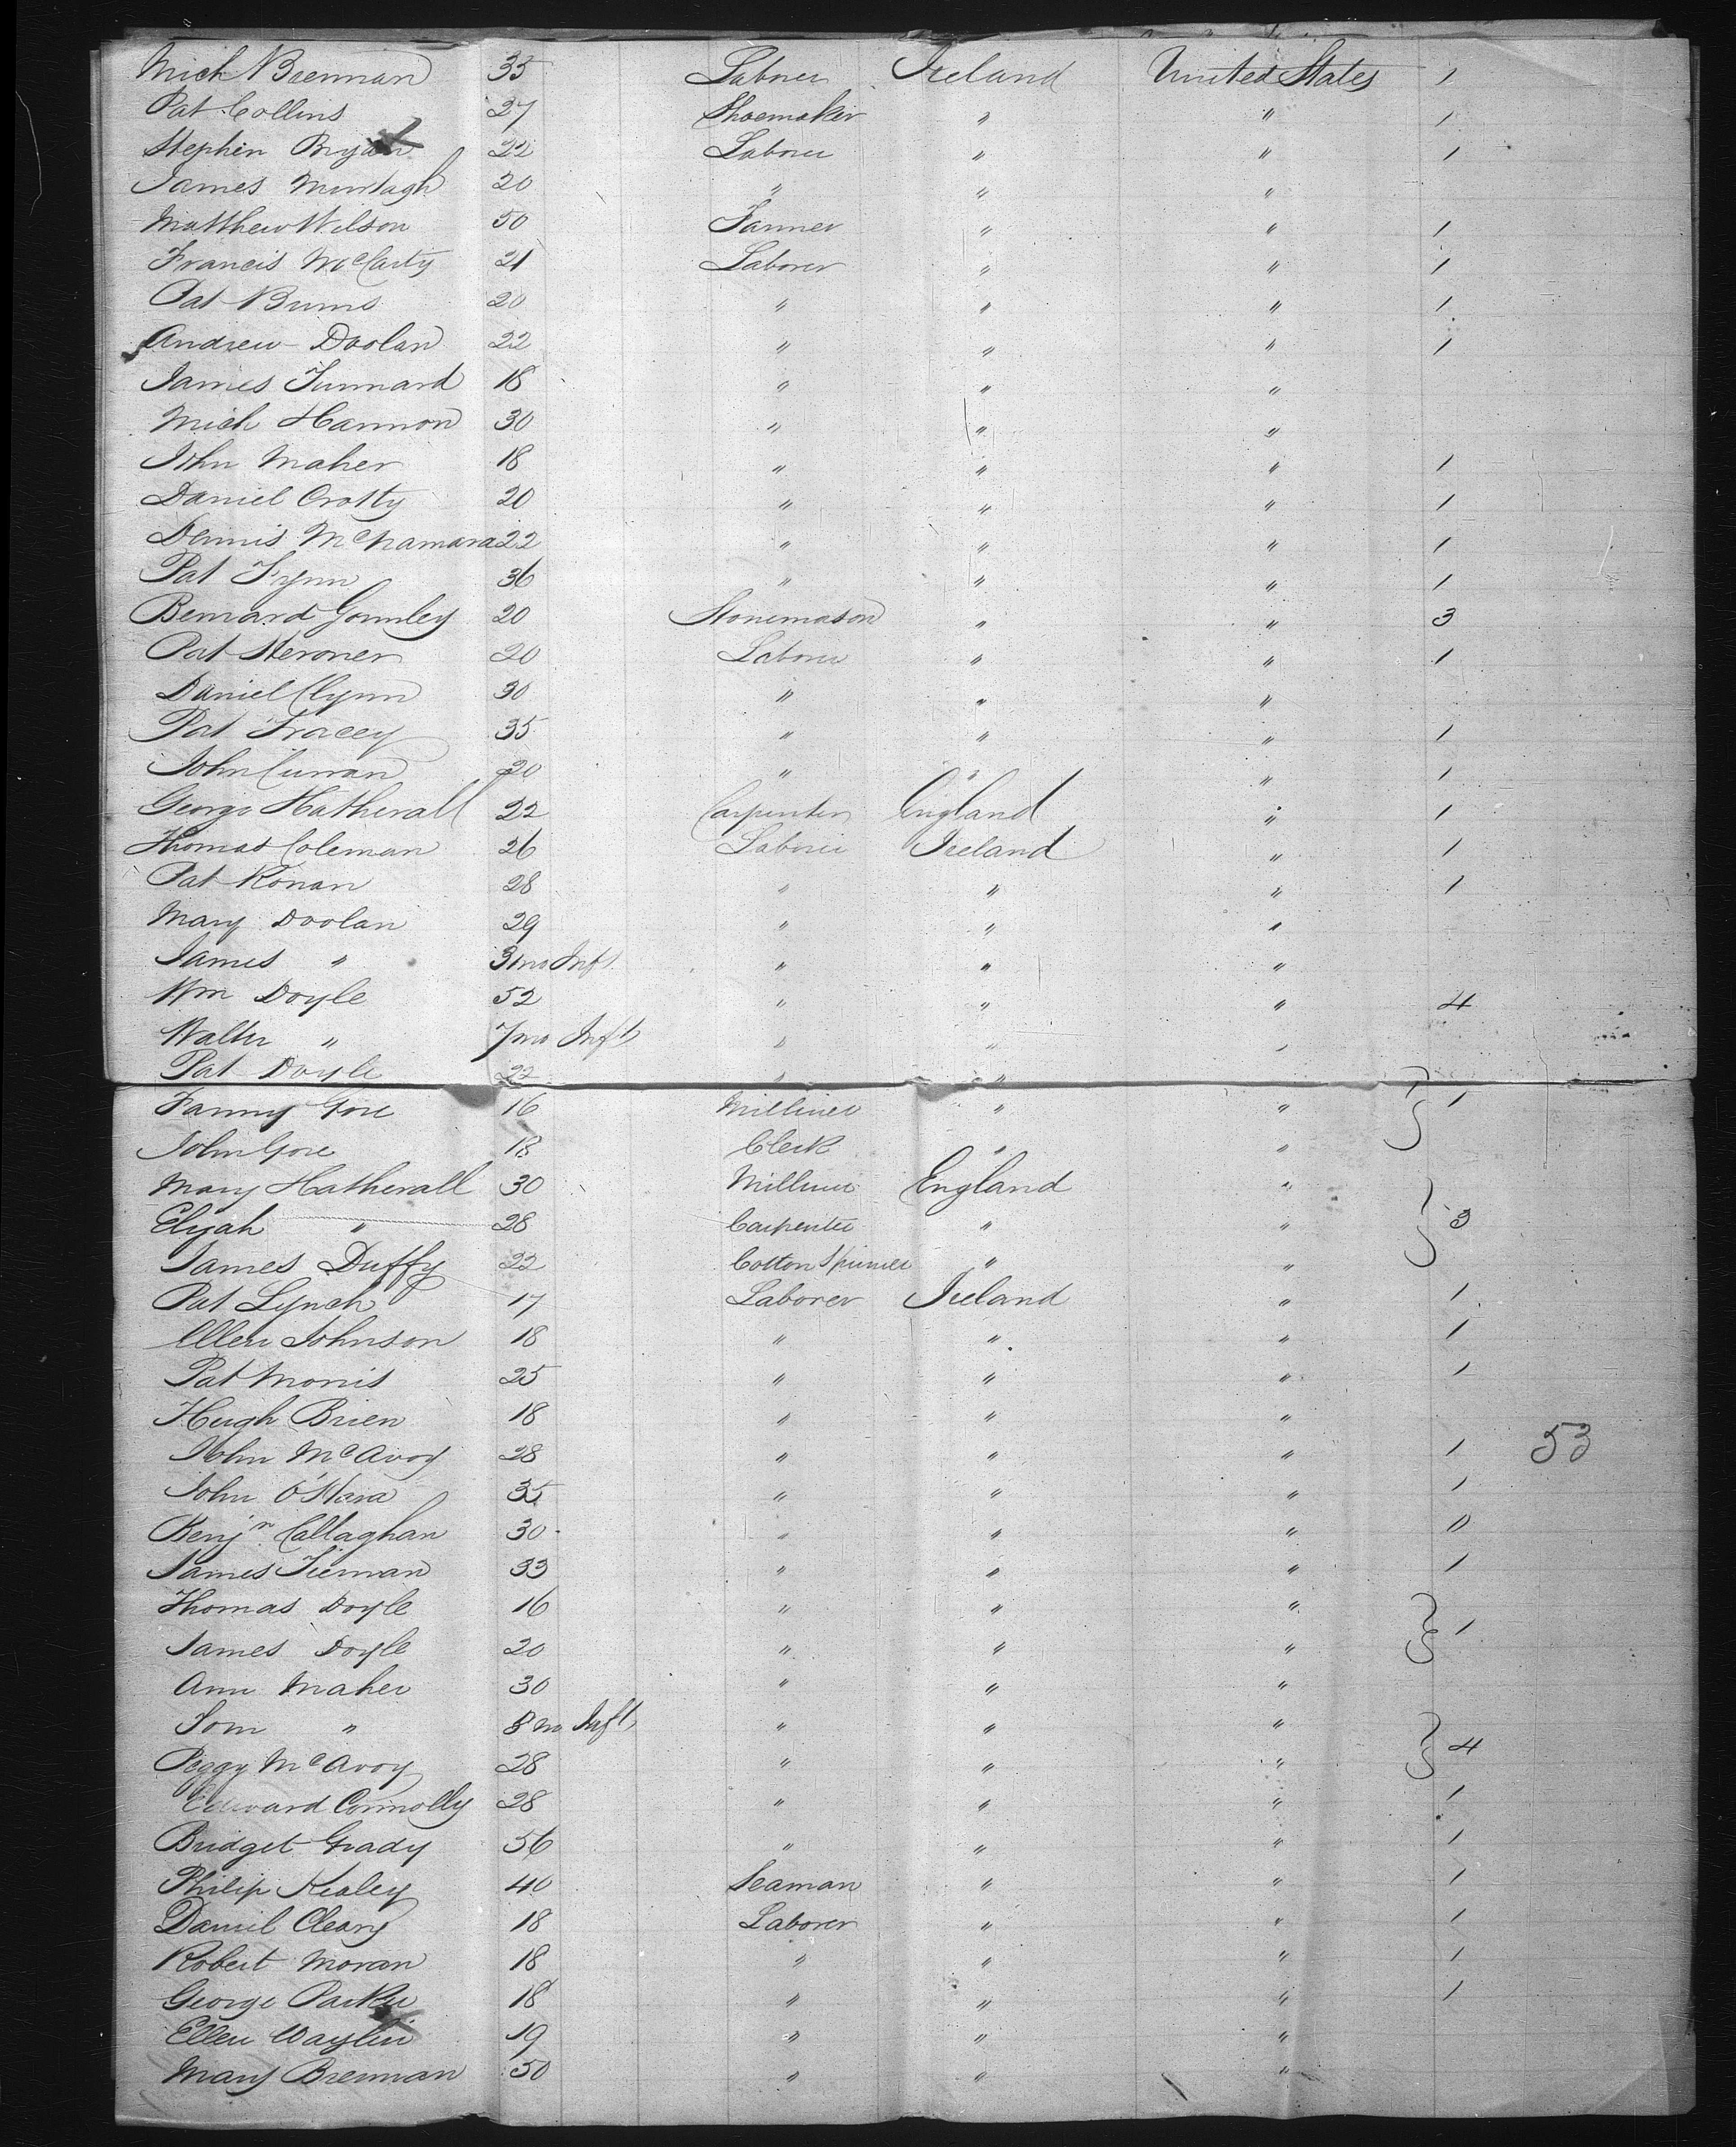 Mich Brennan 35 Laborer Ireland United States 1
Pat Collins 27 Shoemaker " " 1
Stephen Bryan 22 Laborer " " 1
James Murtagh 20 " " "
Matthew Wilson 50 Farmer " " 1
Francis McCarty 21 Laborer " " 1
Pat Burns 20 " " " 1
Andrew Doolan 22 " " " 1
James 18 " " "
Mich Hannon 30 " " "
John Maher 18 " " " 1
Daniel Crotty 20 " " " 1
Dennis McNamara 22 " " " 1
Pat Flynn 36 " " " 1
Bernard Gormley 20 Stonemason " " 3
Pat 20 Laborer " " 1
Daniel Clynn 30 " " "
Pat Tracey 35 " " " 1
John Curran 20 " " " 1
George Hatherall 22 Carpenter England " 1
Thomas Coleman 26 Laborer Ireland " 1
Pat Ronan 28 " " " 1
Mary Doolan 29 " " "
James " 3 mo Inft " " "
Wm Doyle 52 " " " 4
Walter " 7 mo Inft " " "
Pat Doyle 22 " "
Fanny Gore 16 Milliner " " 1
John Gore 18 Clerk " "
Mary Hatherall 30 Milliner England "
Elijah " 28 Carpenter " " 3
James Duffy 22 Cotton Spinner " "
Pat Lynch 17 Laborer Ireland " 1
Ellen Johnson 18 " " " 1
Pat Morris 25 " " " 1
Hugh Brien 18 " " "
John McAvoy 28 " " " 1 53
John O'Hara 35 " " " 1
Benjn Callaghan 30 " " " 0
James Tiernan 33 " " " 1
Thomas Doyle 16 " " " 1
James Doyle 20 " " "
Ann Maher 30 " " "
Tom " 8 m Inft " " "
Peggy McAvoy 28 " " " 4
Edward Connolly 28 " " " 1
Bridget Grady 56 " " " 1
Philip Kealey 40 Seaman " " 1
Daniel Cleary 18 Laborer " " 1
Robert Moran 18 " " " 1
George Parker 18 " " " 1
Ellen 19 " " "
Mary Brennan 50 " " "